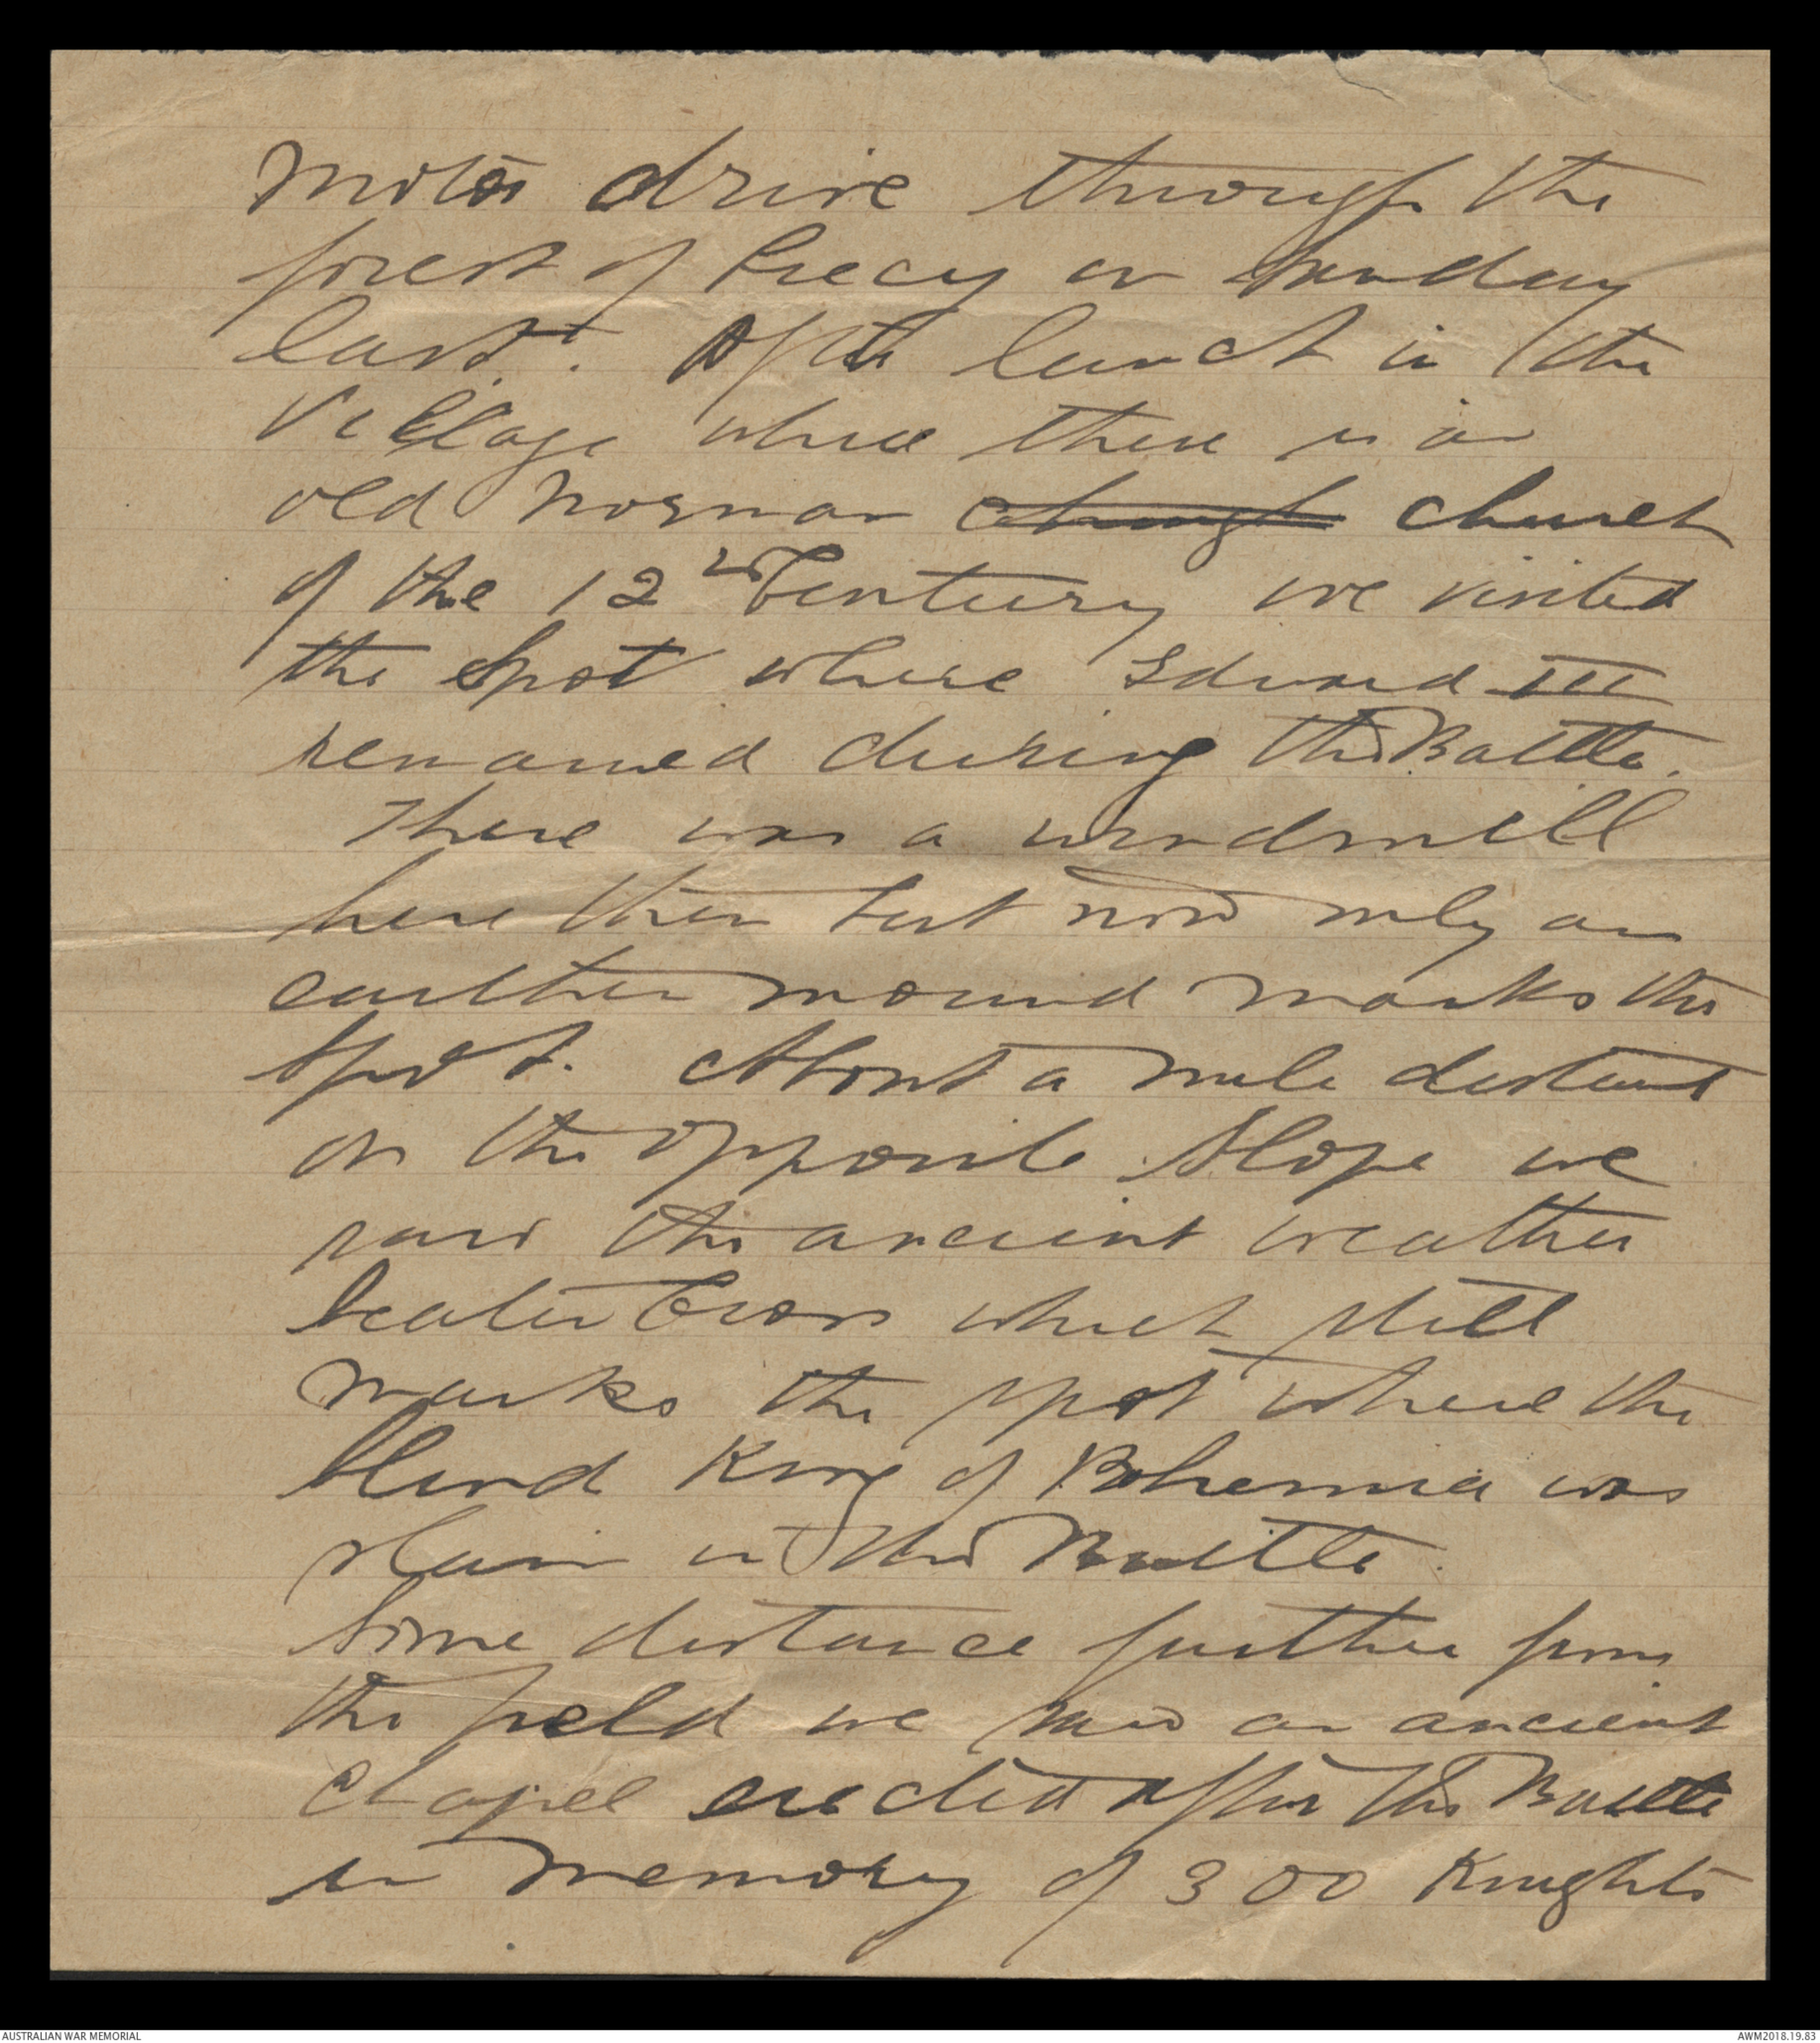 motor drive through the
forest of Crecy on Sunday
last. After lunch in the
Village where there is an
old Norman church
of the 12 Century we visited
the spot where Edward III
remained during the Battle.
There was a windmill
here then but now only an
earthen mound marks the
spot. About a mile distant
on the opposite slope we
saw the ancient weather
beaten Cross which still
marks the spot where the
blind King of Bohemia was
slain in the Battle.
Some distance further from
the field we saw an ancient
chapel erected after the Battle
in memory of 300 Knights
AUSTRALIAN WAR MEMORIAL
AWM2018.19.83